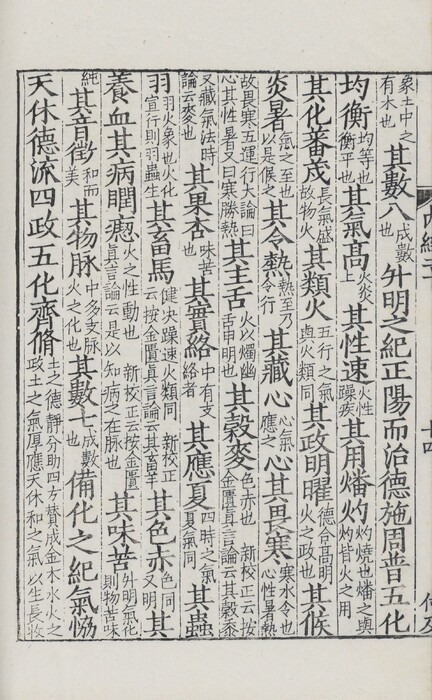 象土中之有木也其數八成數也升明之紀正陽而治德施周普五化
均衡均等也衡平也其氣高火炎上其性速火性躁疾其用燔灼灼燒也燔之與灼皆火之用
其化蕃茂長氣盛故物火其類火五行之氣與火類同其政明曜德合高明火之政也其候
炎暑氣之至也以是候之其令熱熱至乃令行其藏心心氣應之心其畏寒寒水令也心性暑熱
故畏寒五運行大論曰心其性暑又曰寒勝熱其主舌火以燭幽舌申明也其穀麥色赤也 新校正云按金匱真言論云其穀黍
又藏氣法時論云麥也其果杏味苦也其實絡中有支絡者其應夏四時之氣夏氣同其蟲
羽羽火象也火化宣行則羽蟲生其畜馬健決躁速火類同 新校正云按金匱真言論云其畜羊其色赤色同又明其
養血其病瞤瘛火之性動也 新校正云按金匱真言論云是以知病之在脉也其味苦升明氣化則物苦味
純其音徵和而美其物脉中多支脉火之化也其數七成數也備化之紀氣恊
天休德流四政五化齊脩土之德靜分助四方贊成金木水火之政土之氣厚應天休和之氣以生長收